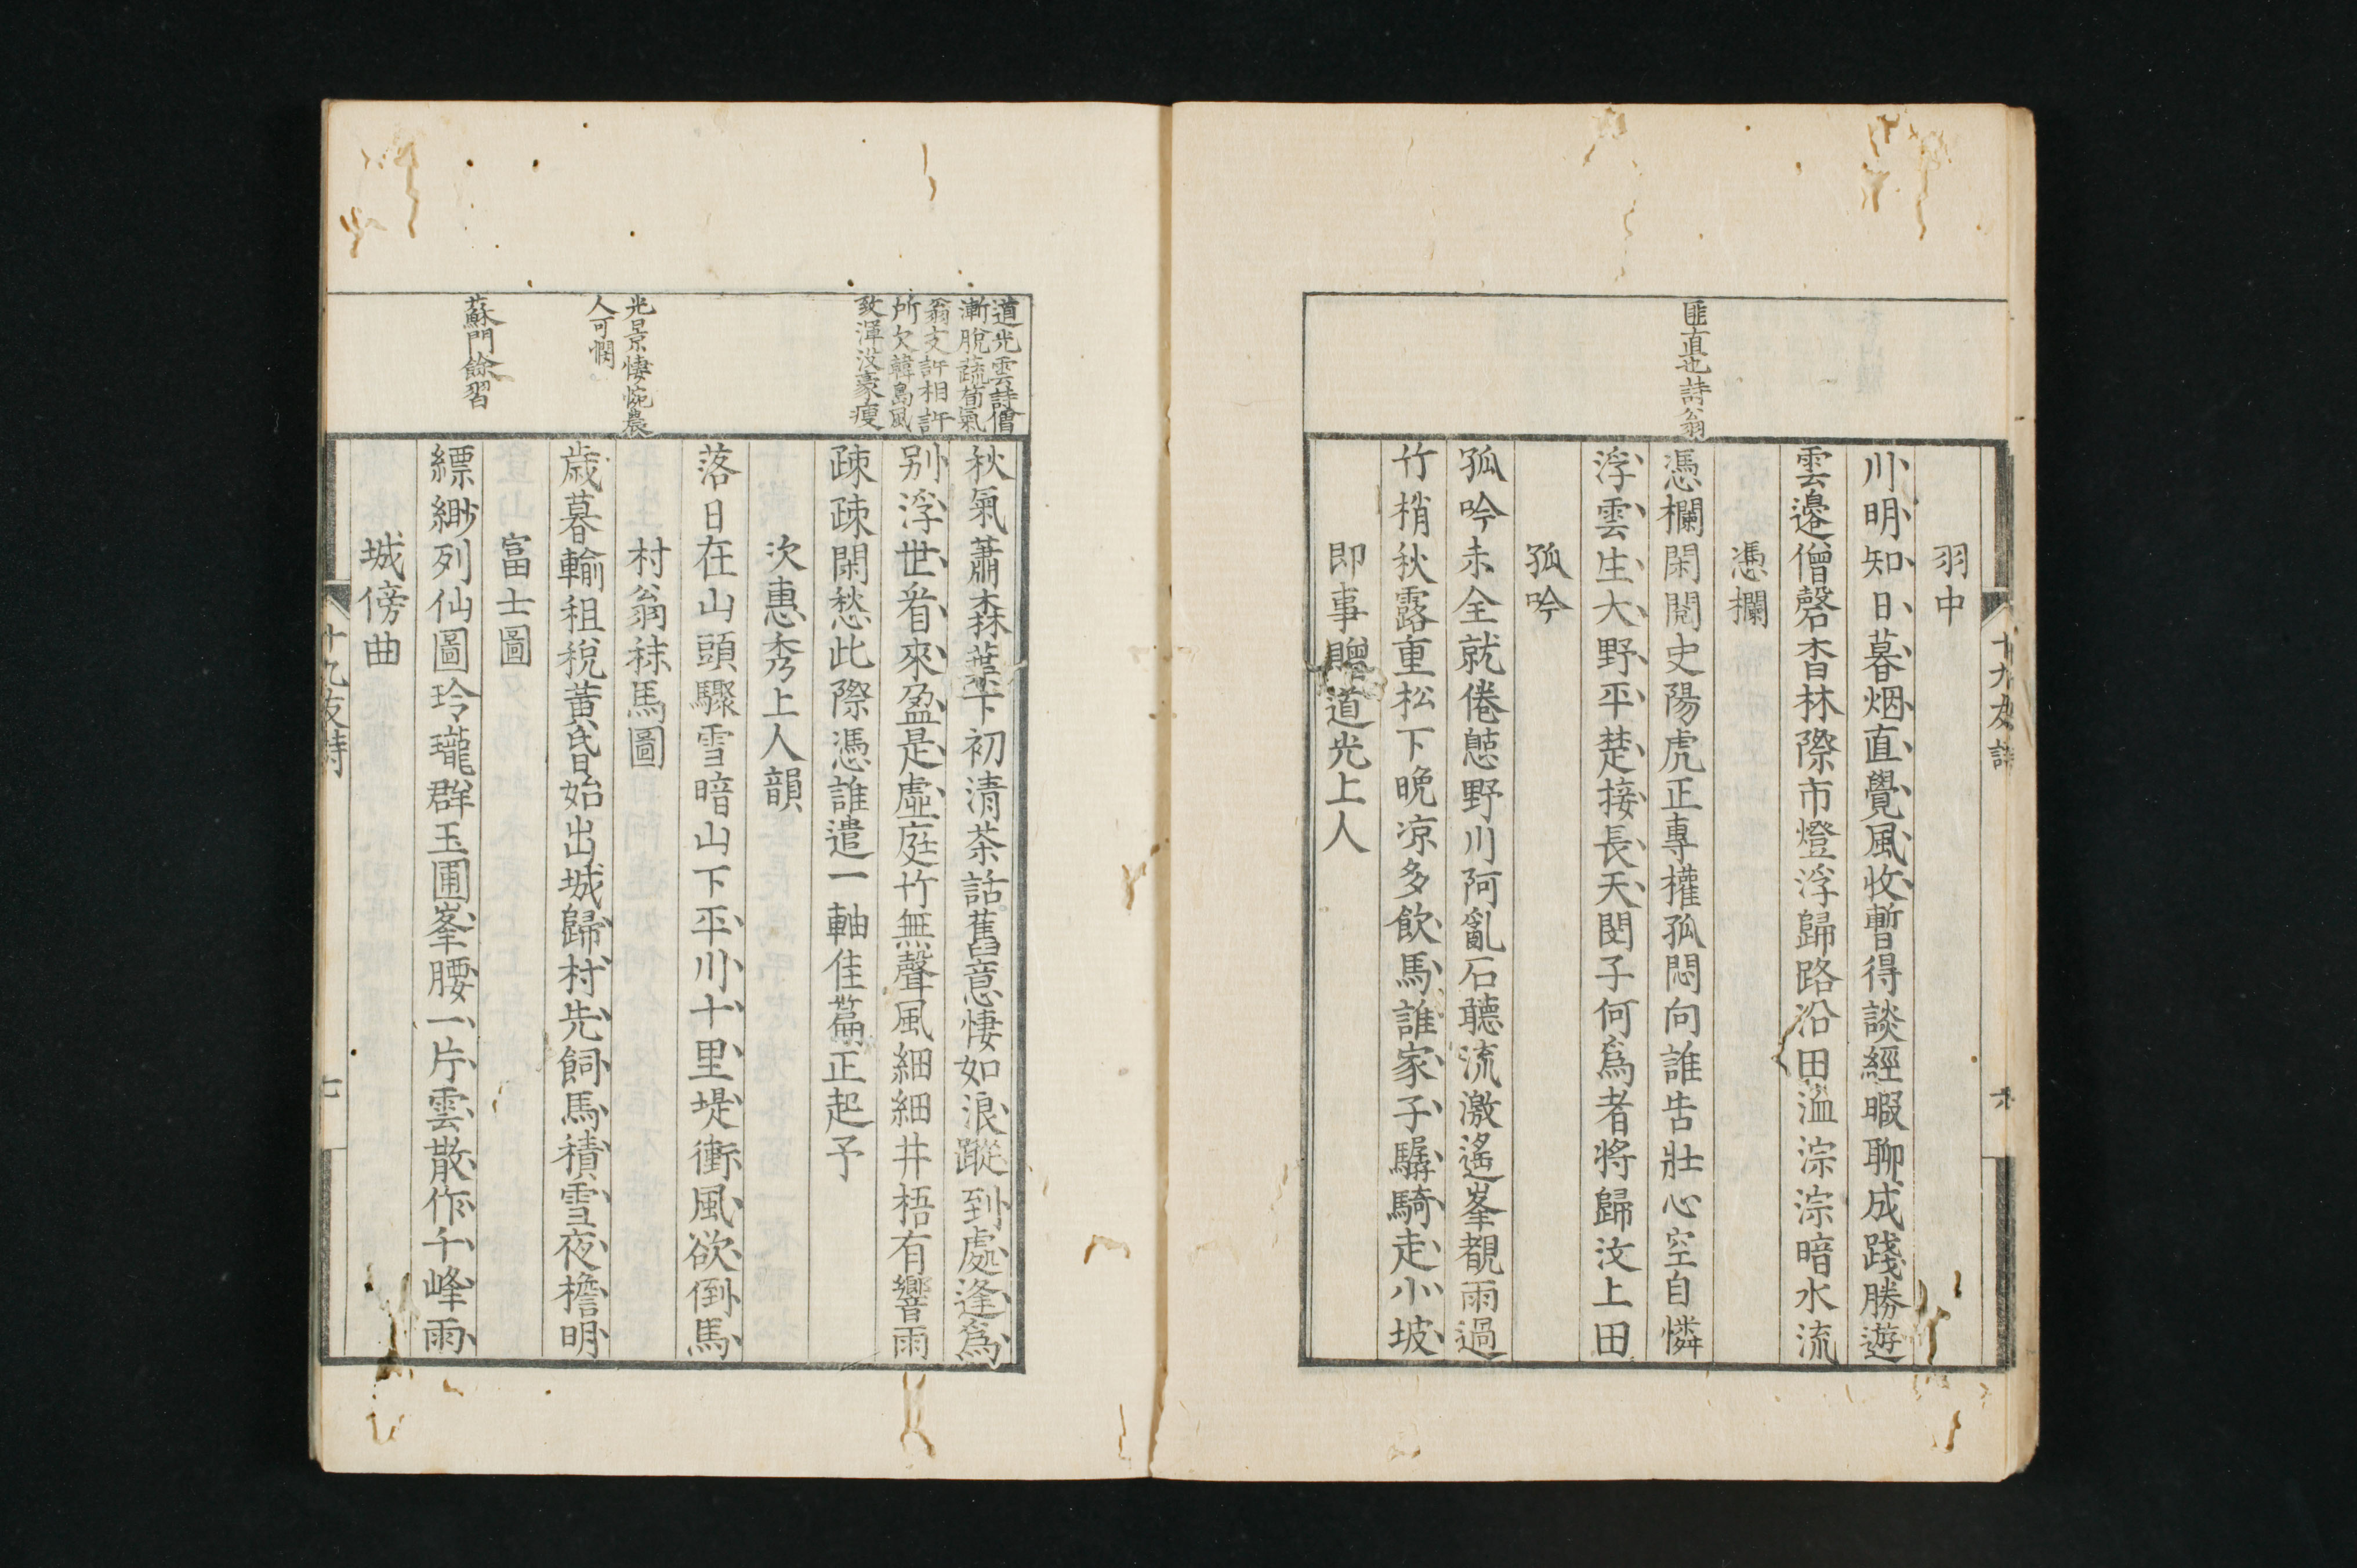 十九友詩
羽中
川明知日暮烟直覺風收暫得談經暇聊成踐勝遊
雲邊僧磬杳林際市燈浮歸路沿田洫淙淙暗水流
憑欄
匪直也詩翁
憑欄閑閱史陽虎正專權孤悶向誰告壯心空自憐
浮雲生大野平楚接長天閔子何爲者將歸汶上田
孤吟
孤吟未全就倦憩野川阿亂石聽流激遙峯覩雨過
竹梢秋露重松下晩凉多飲馬誰家子驏騎走小坡
即事贈道光上人
道光雲詩僧
漸脫蔬筍氣
翁支許相許
所欠韓島風
致渾沒豪瘦
秋氣蕭森葉下初清茶話舊意悽如浪蹤到處逢爲
別浮世看來盈是虛庭竹無聲風細細井梧有響雨
疎疎閑愁此際憑誰遣一軸佳篇正起予
次惠秀上人韻
落日在山頭驟雪暗山下平川十里堤衝風欲倒馬
光景悽惋農
人可憫
村翁秣馬圖
歲暮輸租稅黃昏始出城歸村先飼馬積雪夜檐明
富士圖
蘇門餘習
縹緲列仙圖玲瓏群玉圃峯腰一片雲散作千峰雨
城傍曲
十九友詩
七